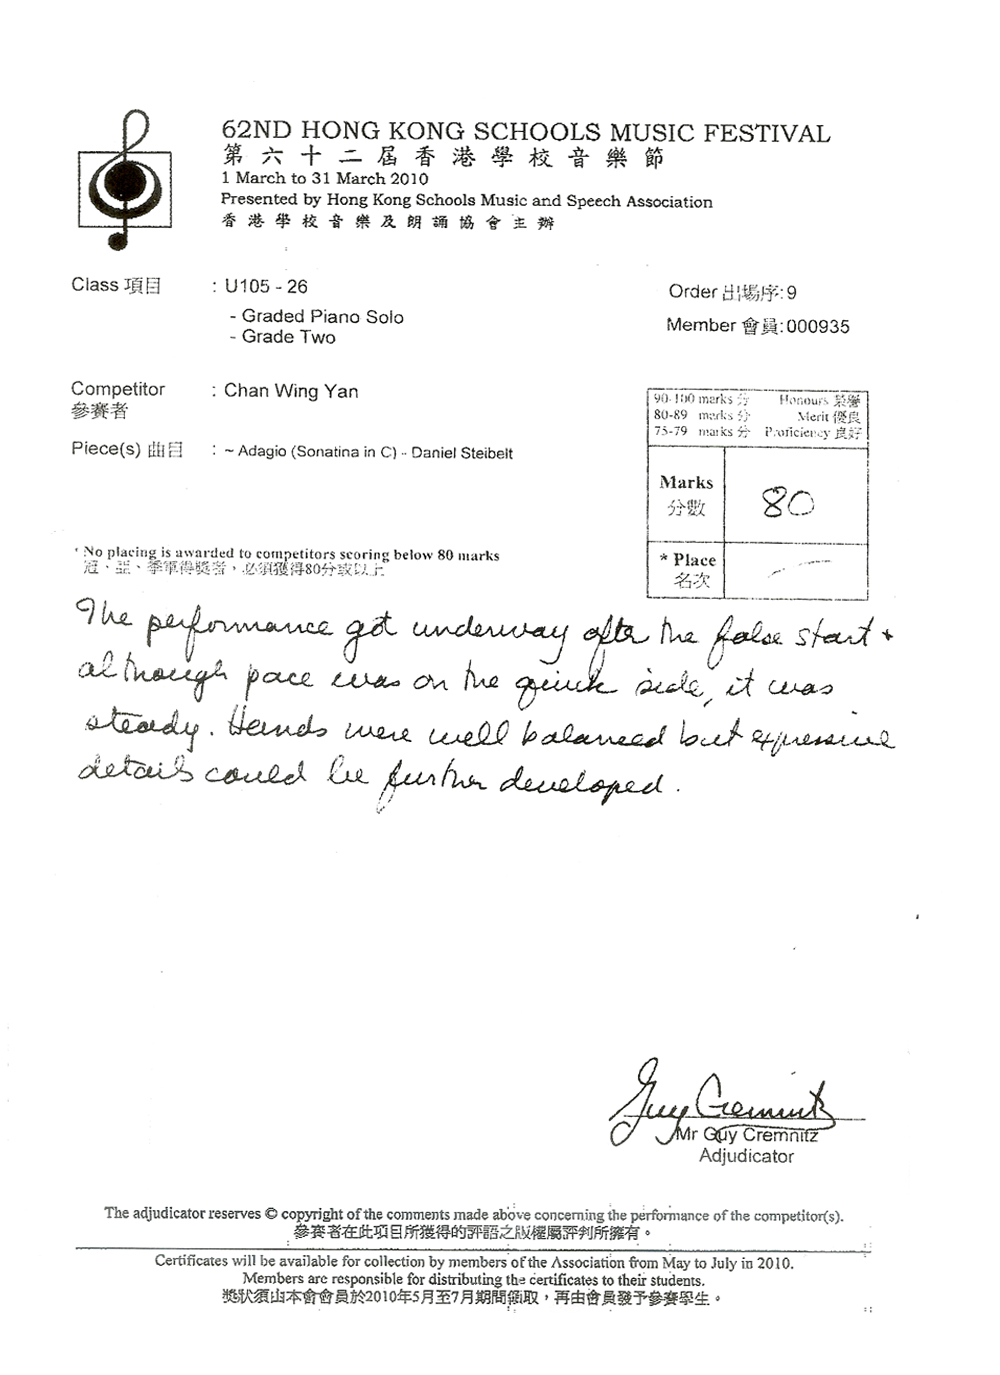 62ND HONG KONG SCHOOLS MUSIC FESTIVAL
第六十二屆香港學校音樂節
1 March to 31 March 2010
Presented by Hong Kong Schools Music and Speech Association
香港學校音樂及朗誦協會主辦
Class 項目 : U105 - 26
- Graded Piano Solo
- Grade Two
Order 出場序: 9
Member 會員: 000935
Competitor : Chan Wing Yan
參賽者
Piece(s) 曲目 : ~ Adagio (Sonatina in C) - Daniel Steibelt
90-100 marks 分 Honours 榮譽
80-89 marks 分 Merit 優良
75-79 marks 分 Proficiency 良好
Marks
分數
80
* Place
名次
* No placing is awarded to competitors scoring below 80 marks
冠、亞、季軍得獎者，必須獲得80分或以上
The performance got underway after the false start +
although pace was on the quick side, it was
steady. Hands were well balanced but expressive
details could be further developed.
Guy Cremnitz
Mr Guy Cremnitz
Adjudicator
The adjudicator reserves © copyright of the comments made above concerning the performance of the competitor(s).
參賽者在此項目所獲得的評語之版權屬評判所擁有。
Certificates will be available for collection by members of the Association from May to July in 2010.
Members are responsible for distributing the certificates to their students.
獎狀須由本會會員於2010年5月至7月期間領取，再由會員發予參賽學生。